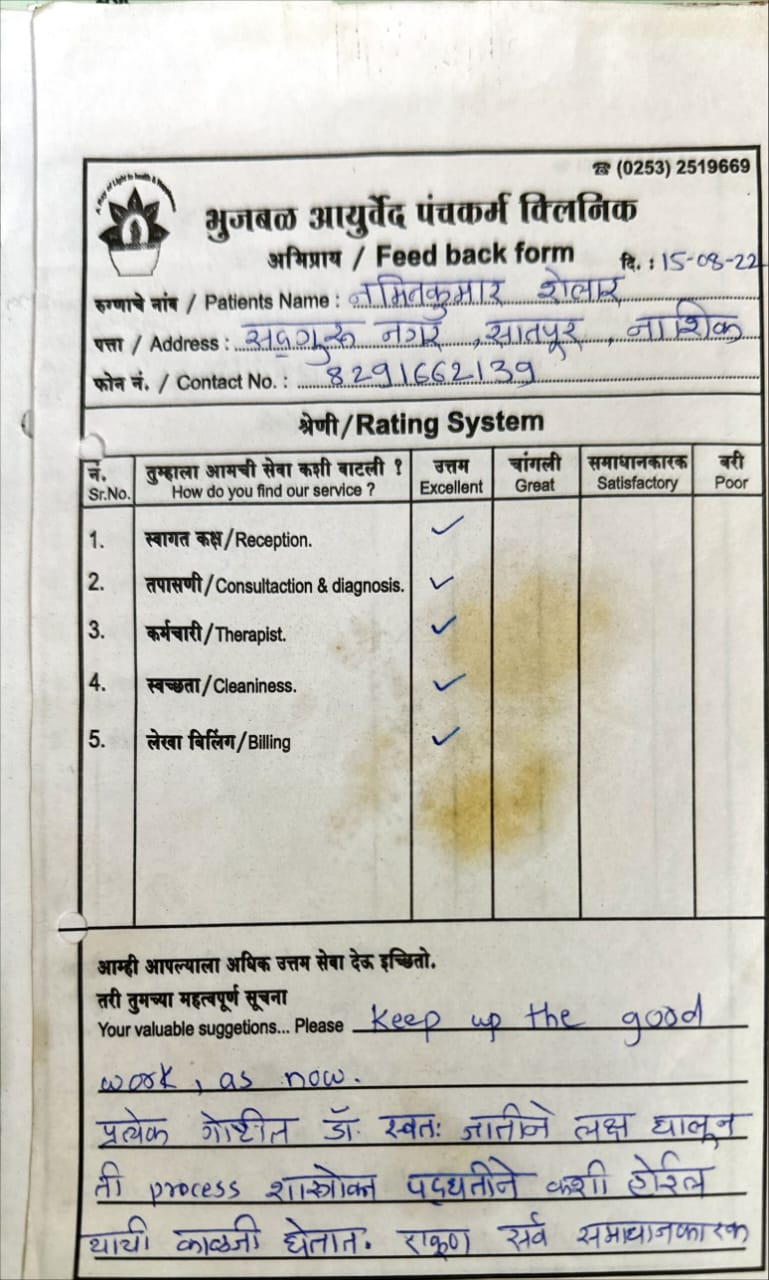 ☎ (0253) 2519669
भुजबळ आयुर्वेद पंचकर्म क्लिनिक
अभिप्राय / Feed back form
दि. : 15-08-22
रुग्णाचे नांव / Patients Name : नमितकुमार शेलार
पत्ता / Address : सदगुरू नगर, सातपूर, नाशिक
फोन नं. / Contact No. : 8291662139
श्रेणी/Rating System
नं. तुम्हाला आमची सेवा कशी वाटली ? उत्तम चांगली समाधानकारक बरी
Sr.No. How do you find our service ? Excellent Great Satisfactory Poor
1. स्वागत कक्ष/Reception. ✓
2. तपासणी/Consultaction & diagnosis. ✓
3. कर्मचारी/Therapist. ✓
4. स्वच्छता/Cleaniness. ✓
5. लेखा बिलिंग/Billing ✓
आम्ही आपल्याला अधिक उत्तम सेवा देऊ इच्छितो.
तरी तुमच्या महत्वपूर्ण सूचना
Your valuable suggetions... Please Keep up the good
work, as now.
प्रत्येक गोष्टीत डॉ. स्वतः जातीने लक्ष घालून
ती process शास्त्रोक्त पद्धतीने कशी होईल
याची काळजी घेतात. एकूण सर्व समाधानकारक